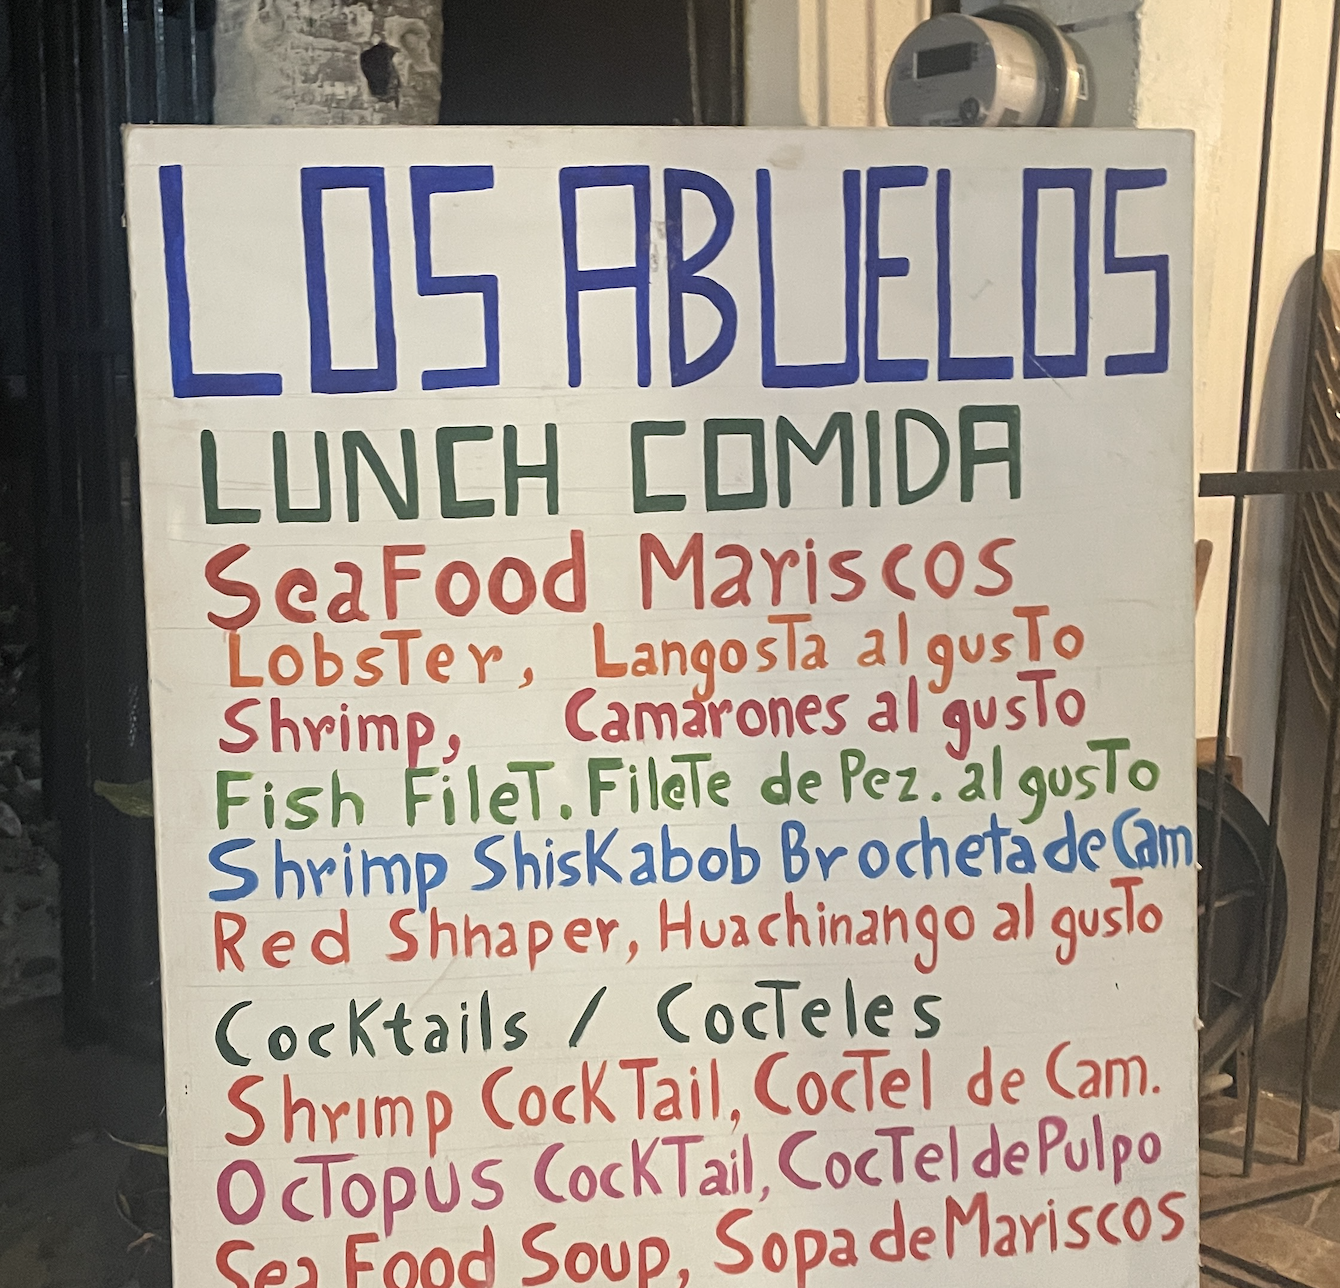 LOS ABUELOS
LUNCH COMIDA
SeaFood Mariscos
LobsTer, LangosTa al gusTo
Shrimp, Camarones al gusTo
Fish FileT. FileTe de Pez. al gusTo
Shrimp ShisKabob Brocheta de Cam.
Red Shhaper, Huachinango al gusTo
CocKtails / CocTeles
Shrimp CocKTail, CocTel de Cam.
OcTopus CocKTail, CocTel de Pulpo
Sea Food Soup, Sopa de Mariscos